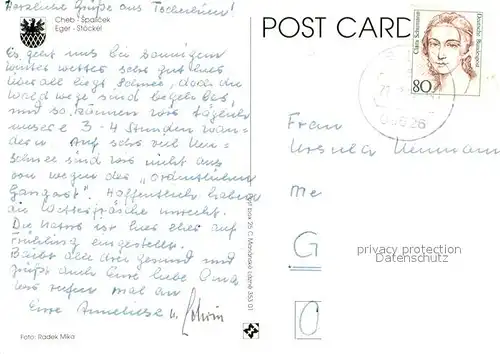 Herzliche Grüße aus Tschechien!
Cheb - Špalíček
Eger - Stöckel
Es geht uns bei sonnigem
Winterwetter sehr gut hier
überall liegt Schnee, doch die
Waldwege sind begehbar,
und so können wir täglich
unsere 3-4 Stunden wan-
dern. Auf sehr viel Neu-
schnee sind wir nicht aus
von wegen der "ordentlichen
Gangart". Hoffentlich haben
die Wetterfrösche unrecht.
Die Natur ist hier eher auf
Frühling eingestellt.
Bleibt alle drei gesund und
grüßt auch Eure liebe Oma
wir rufen mal an
Eure Anneliese u.
Foto: Radek Mika
POST CARD
Clara Schumann
Deutsche Bundespost
80
Frau
Ursula Neumann
Me
G
privacy protection
Datenschutz
O